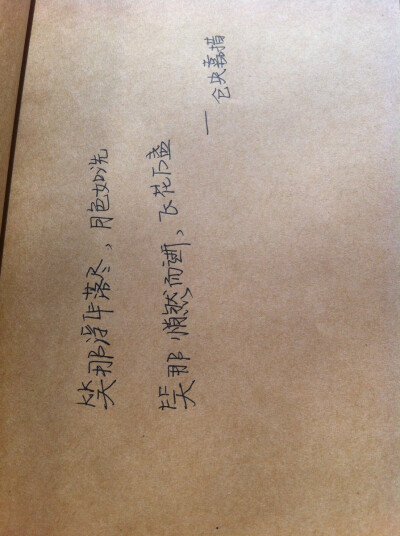 笑那浮华落尽，月色如洗
笑那悄然而逝，飞花万盏
— 仓央嘉措